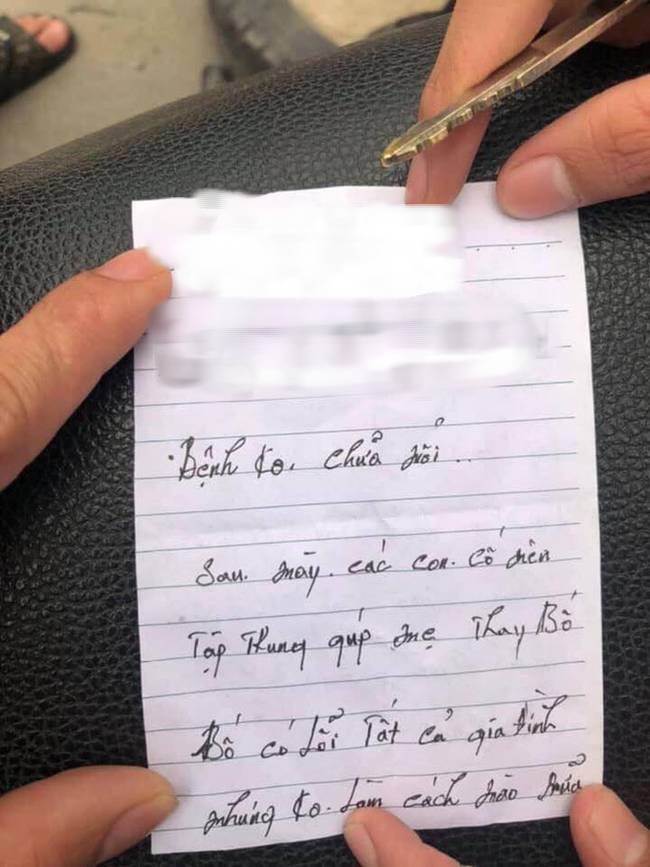 Bệnh ko. chửa nỗi..
Sau. này. các con. cố nên
Tập Trung gúp mẹ Thay Bố
Bố có Lỗi Tất cả gia đình
nhưng ko. Làm cách nào nữa